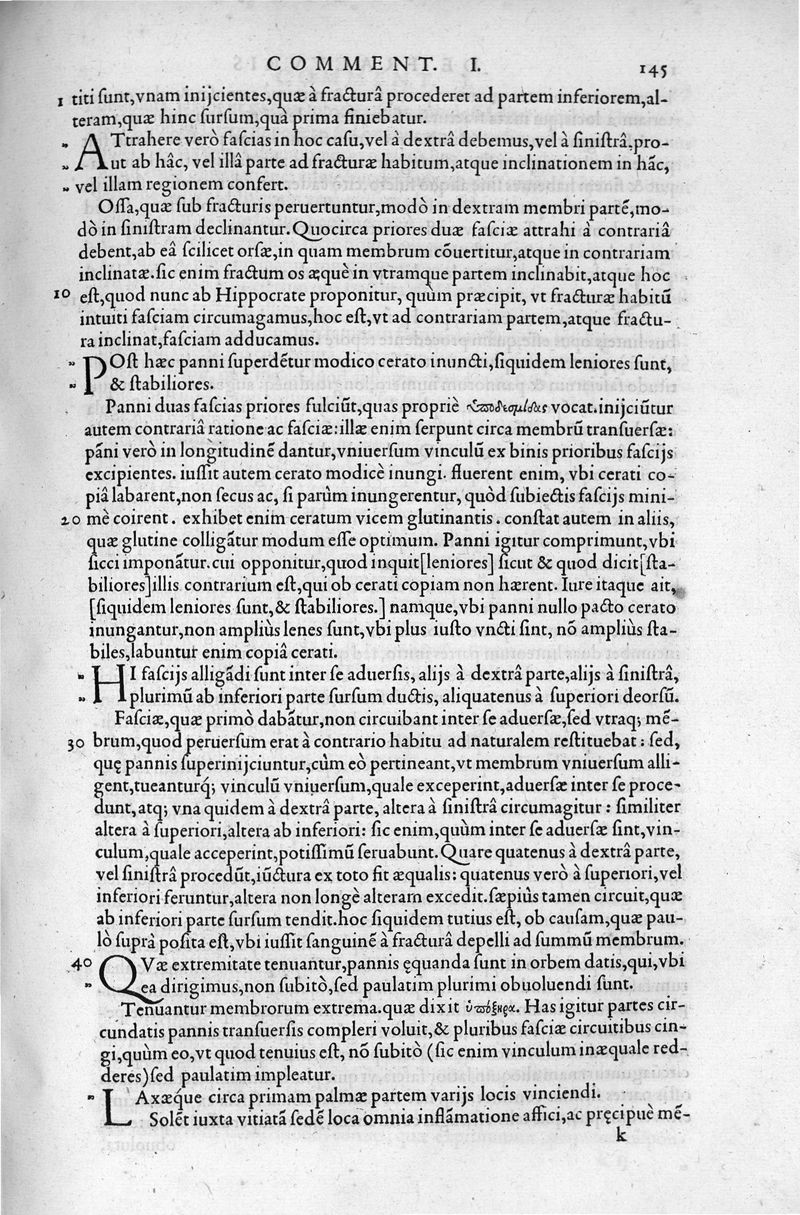 COMMENT. I. 145
1 titi ſunt,vnam inijcientes,quæ à fracturâ procederet ad partem inferiorem,al-
teram,quæ hinc ſurſum,quà prima finiebatur.
" ATtrahere verò faſcias in hoc caſu,vel à dextrâ debemus,vel à ſiniſtrâ,pro-
" ut ab hâc, vel illâ parte ad fracturæ habitum,atque inclinationem in hãc,
" vel illam regionem confert.
Oſſa,quæ ſub fracturis peruertuntur,modò in dextram membri partẽ,mo-
dò in ſiniſtram declinantur.Quocirca priores duæ faſciæ attrahi à contrariâ
debent,ab eâ ſcilicet orſæ,in quam membrum cõuertitur,atque in contrariam
inclinatæ.ſic enim fractum os æquè in vtramque partem inclinabit,atque hoc
10 eſt,quod nunc ab Hippocrate proponitur, quùm præcipit, vt fracturæ habitũ
intuiti faſciam circumagamus,hoc eſt,vt ad contrariam partem,atque fractu-
ra inclinat,faſciam adducamus.
" POſt hæc panni ſuperdẽtur modico cerato inuncti,ſiquidem leniores ſunt,
" & ſtabiliores.
Panni duas faſcias priores fulciũt,quas propriè ὑποδεσμίδας vocat.inijciũtur
autem contrariâ ratione ac faſciæ:illæ enim ſerpunt circa membrũ tranſuerſæ:
pãni verò in longitudinẽ dantur,vniuerſum vinculũ ex binis prioribus faſcijs
excipientes. iuſſit autem cerato modicè inungi. fluerent enim, vbi cerati co-
piâ labarent,non ſecus ac, ſi parùm inungerentur, quòd ſubiectis faſcijs mini-
20 mè coirent. exhibet enim ceratum vicem glutinantis. conſtat autem in aliis,
quæ glutine colligãtur modum eſſe optimum. Panni igitur comprimunt,vbi
ſicci imponãtur.cui opponitur,quod inquit[leniores] ſicut & quod dicit[ſta-
biliores]illis contrarium eſt,qui ob cerati copiam non hærent. Iure itaque ait,
[ſiquidem leniores ſunt,& ſtabiliores.] namque,vbi panni nullo pacto cerato
inungantur,non ampliùs lenes ſunt,vbi plus iuſto vncti ſint, nõ ampliùs ſta-
biles,labuntur enim copiâ cerati.
" HI faſcijs alligãdi ſunt inter ſe aduerſis, alijs à dextrâ parte,alijs à ſiniſtrâ,
" plurimũ ab inferiori parte ſurſum ductis, aliquatenus à ſuperiori deorſũ.
Faſciæ,quæ primò dabãtur,non circuibant inter ſe aduerſæ,ſed vtraq; mẽ-
30 brum,quod peruerſum erat à contrario habitu ad naturalem reſtituebat: ſed,
quę pannis ſuperinijciuntur,cùm eò pertineant,vt membrum vniuerſum alli-
gent,tueanturq́; vinculũ vniuerſum,quale exceperint,aduerſæ inter ſe proce-
dunt,atq; vna quidem à dextrâ parte, altera à ſiniſtrâ circumagitur: ſimiliter
altera à ſuperiori,altera ab inferiori: ſic enim,quùm inter ſe aduerſæ ſint,vin-
culum,quale acceperint,potiſſimũ ſeruabunt.Quare quatenus à dextrâ parte,
vel ſiniſtrâ procedũt,iũctura ex toto fit æqualis: quatenus verò à ſuperiori,vel
inferiori feruntur,altera non longè alteram excedit.ſæpiùs tamen circuit,quæ
ab inferiori parte ſurſum tendit.hoc ſiquidem tutius eſt, ob cauſam,quæ pau-
lò ſuprà poſita eſt,vbi iuſſit ſanguinẽ à fracturâ depelli ad ſummũ membrum.
40 QVæ extremitate tenuantur,pannis ęquanda ſunt in orbem datis,qui,vbi
" ea dirigimus,non ſubitò,ſed paulatim plurimi obuoluendi ſunt.
Tenuantur membrorum extrema.quæ dixit ὑπόξηρα. Has igitur partes cir-
cundatis pannis tranſuerſis compleri voluit,& pluribus faſciæ circuitibus cin-
gi,quùm eo,vt quod tenuius eſt, nõ ſubitò (ſic enim vinculum inæquale red-
deres)ſed paulatim impleatur.
" LAxæque circa primam palmæ partem varijs locis vinciendi.
Solẽt iuxta vitiatã ſedẽ loca omnia inflãmatione affici,ac pręcipuè mẽ-
k